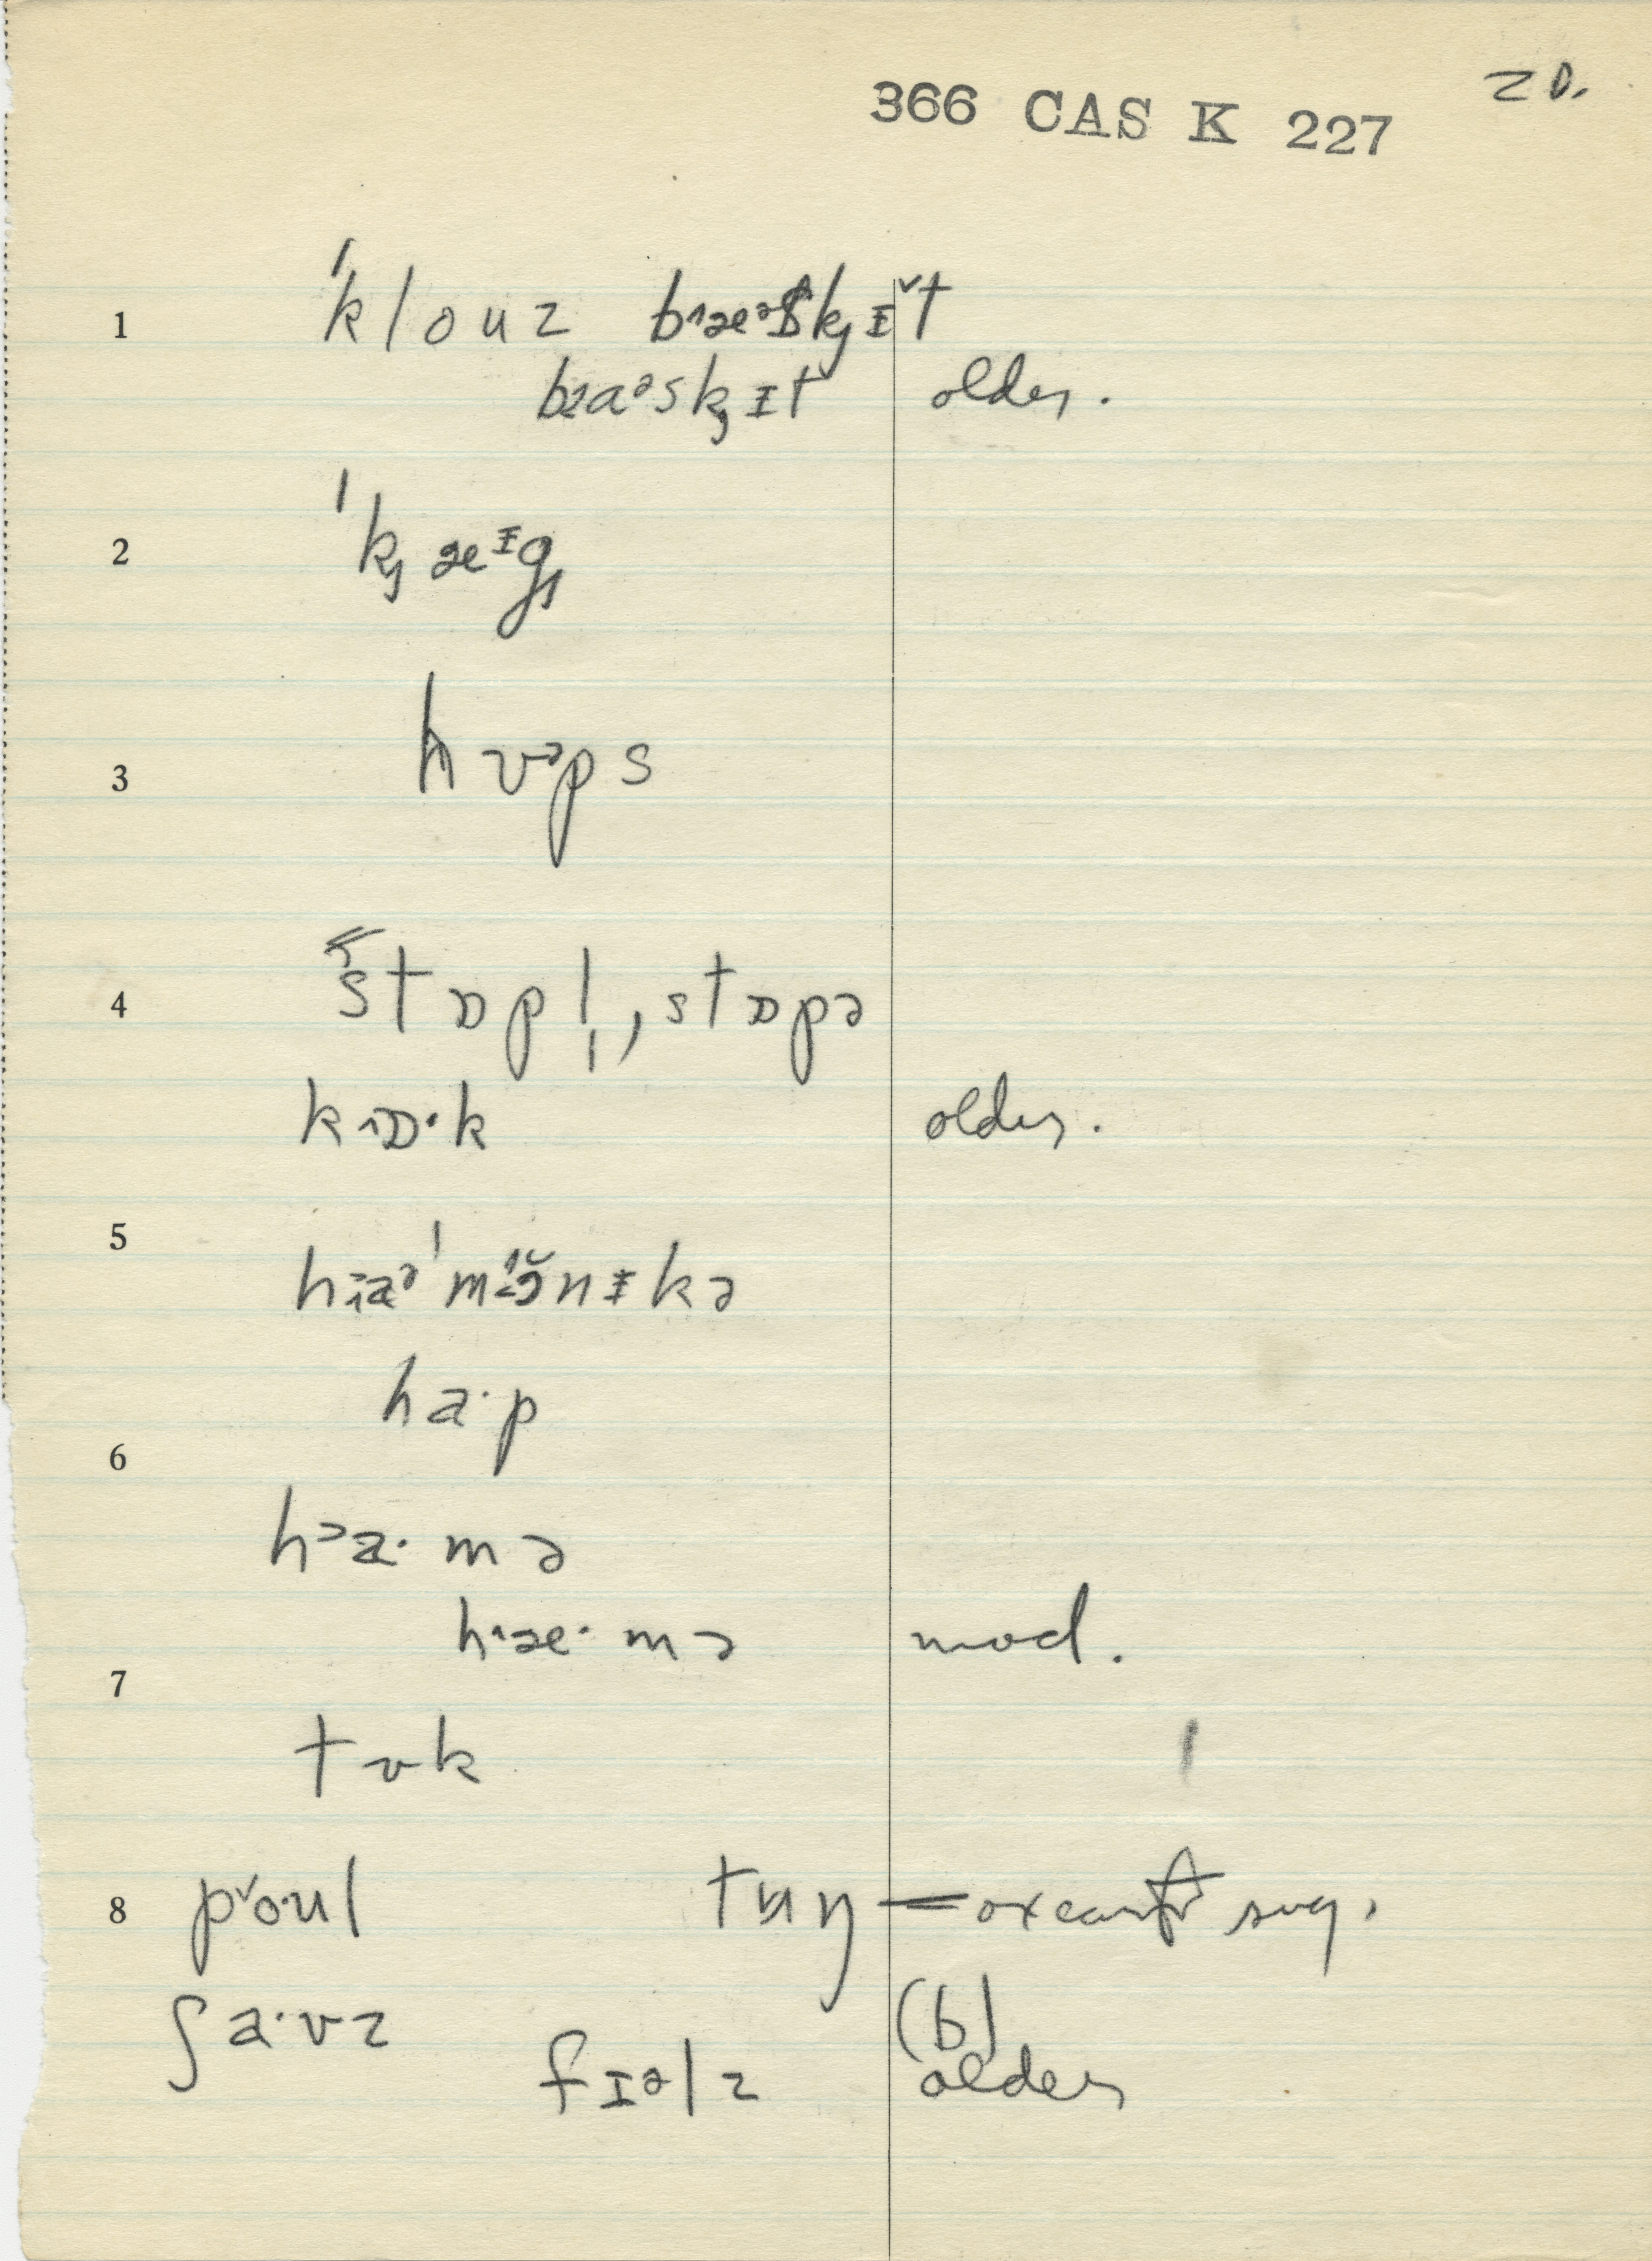 20.
366 CAS K 227
1 ˈklouz bæəskɪt
baəskɪt older.
2 ˈkæɪg
3 hʊps
4 stɒpl̩, stɒpə
kɒ·k older.
5 haəˈmɔnɪkə
ha·p
6
ha·mə
hæ·mə mod.
7
tʊk
8 poul tʌŋ = oxcart sug.
ʃa·vz (b)
fɪəlz older